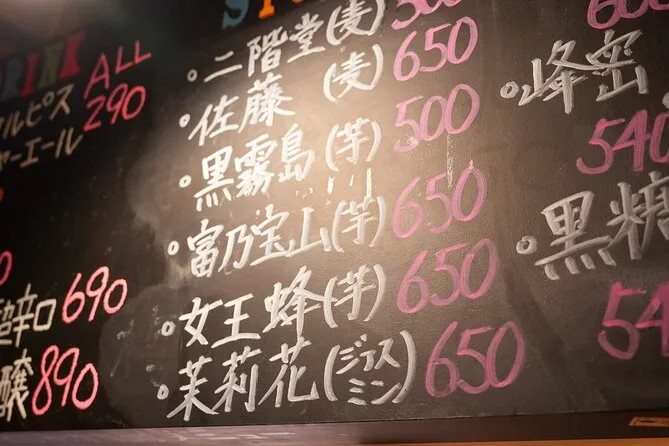 DRINK
ALL
290
ルピス
ャーエール
辛口 690
醸 890
二階堂(麦) 500
佐藤 (麦) 650
黒霧島(芋) 500
富乃宝山(芋) 650
女王蜂(芋) 650
茉莉花(ジャスミン) 650
蜂蜜
540
黒糖
54